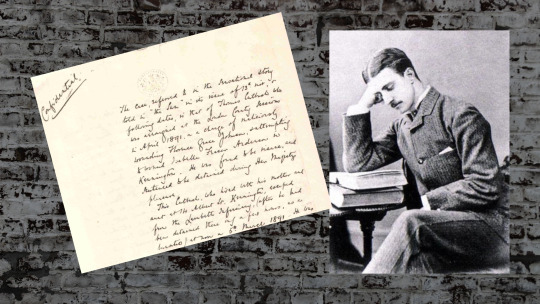 Confidential
The case referred to in the sensational story
told in "The Sun" in its issue of 13th inst, &
following dates, is that of Thomas Cutbush who
was arraigned at the London County Sessions
in April 1891, on a charge of maliciously
wounding Florence Grace Johnson, & attempting
to wound Isabella Fraser Anderson in
Kennington. He was found to be insane, and
sentenced to be detained during Her Majesty's
pleasure.
This Cutbush, who lived with his mother and
aunt at 14 Albert St. Kennington, escaped
from the Lambeth Infirmary, (after he had
been detained there only a few hours, as a
lunatic) at noon on 5th March 1891. He was